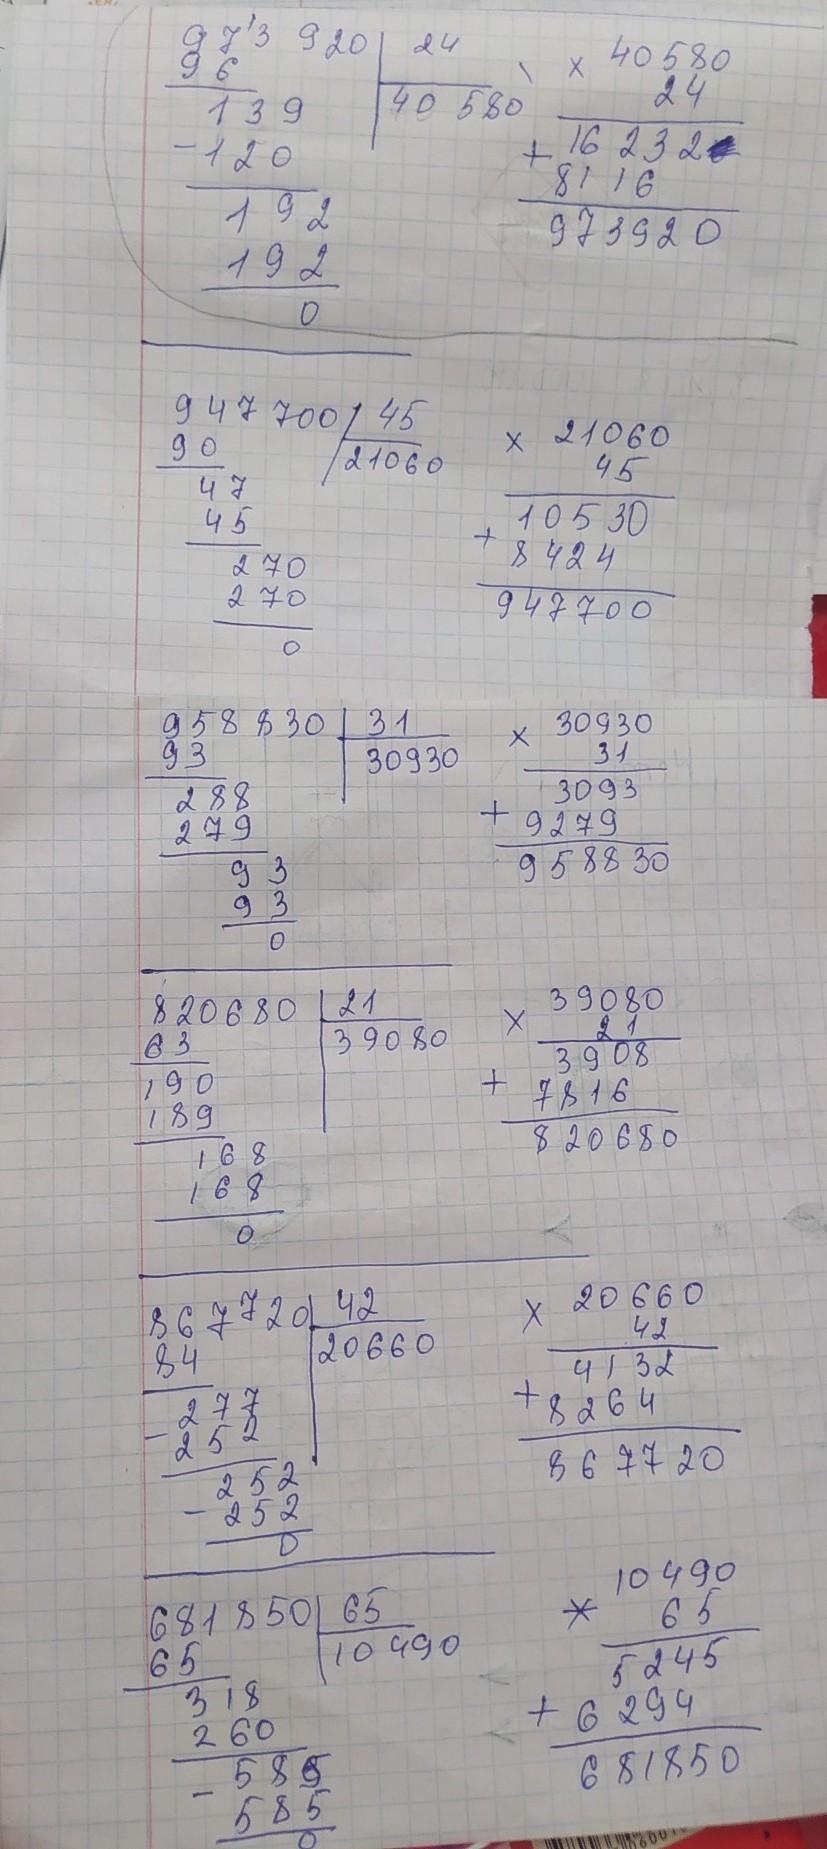 973 920 24
96 40 580
139
- 120
192
192
0
× 40580
24
+ 16 232
81 16
973920
947 700 45
90 21060
47
45
270
270
0
× 21060
45
10530
+ 8424
947700
958 830 31
93 30930
288
279
93
93
0
× 30930
31
3093
+ 9279
958830
820680 21
63 39080
190
189
168
168
0
× 39080
21
3908
+ 7816
820680
867720 42
84 20660
- 277
252
252
- 252
0
× 20660
42
4132
+ 8264
867720
681 850 65
65 10490
318
260
- 585
585
0
10490
× 65
5245
+ 6294
681850